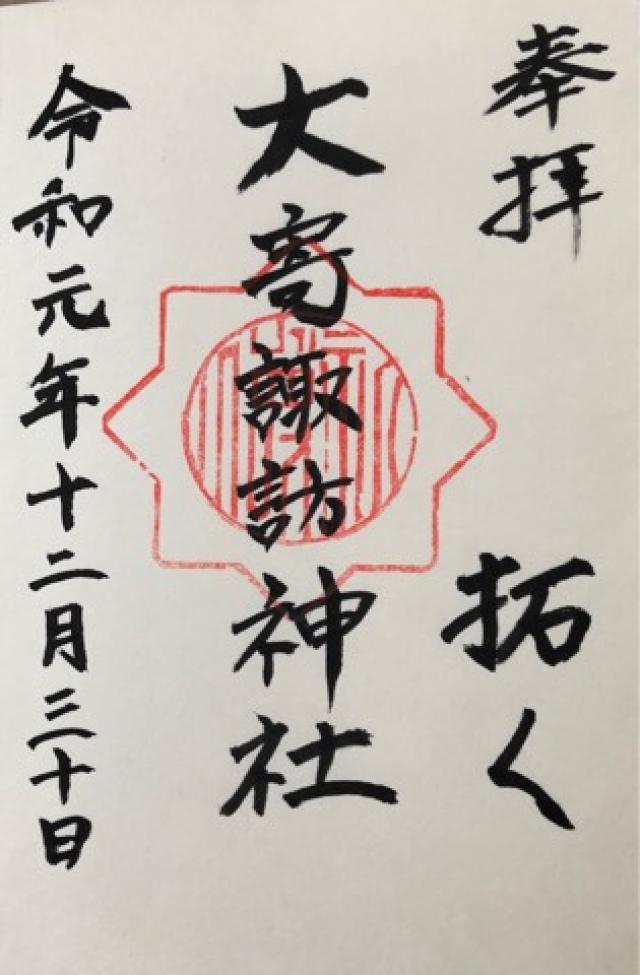 奉拝　拓く
大寄諏訪神社
令和元年十二月三十日